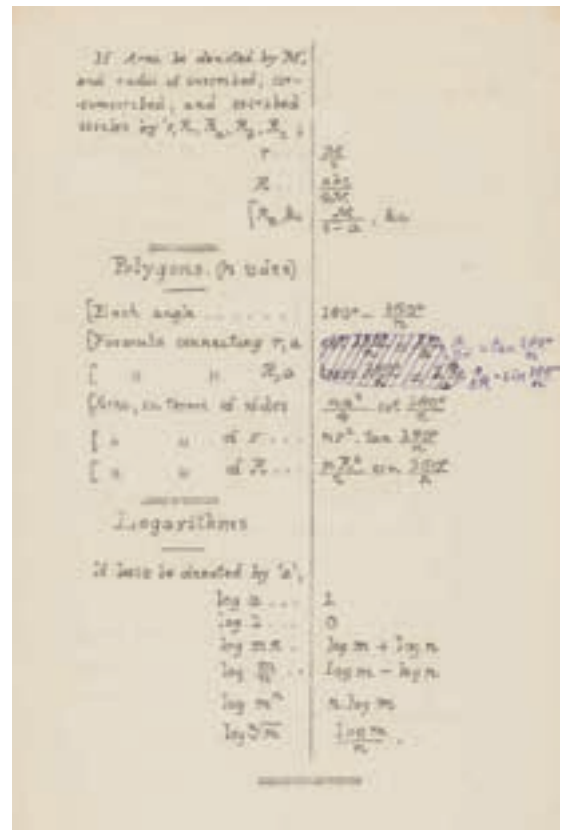 If Area be denoted by M,
and radii of inscribed, cir-
-cumscribed, and escribed
circles by r, R, R_a, R_b, R_c ;
r M/s
R .. abc/4M
[R_a, &c M/s-a, &c
Polygons. (n sides)
[Each angle ....... 180° - 360°/n
[Formula connecting r, a a/2r = tan 180°/n
[ " " R, a a/2R = sin 180°/n
[Area, in terms of sides na²/4 cot 180°/n
[ " " of r ... nr². tan 180°/n
[ " " of R ... nR²/2 sin 360°/n
Logarithms
If base be denoted by 'a',
log a ... 1
log 1 ... 0
log mn . log m + log n
log m/n .. log m - log n
log mⁿ n. log m
log ⁿ√m log m/n .